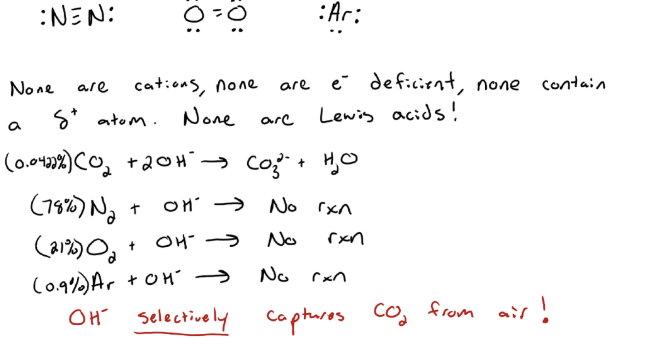 :N≡N: O=O :Ar:
None are cations, none are e⁻ deficient, none contain
a δ⁺ atom. None are Lewis acids!
(0.0422%)CO₂ + 2OH⁻ → CO₃²⁻ + H₂O
(78%)N₂ + OH⁻ → No rxn
(21%)O₂ + OH⁻ → No rxn
(0.9%)Ar + OH⁻ → No rxn
OH⁻ selectively captures CO₂ from air!